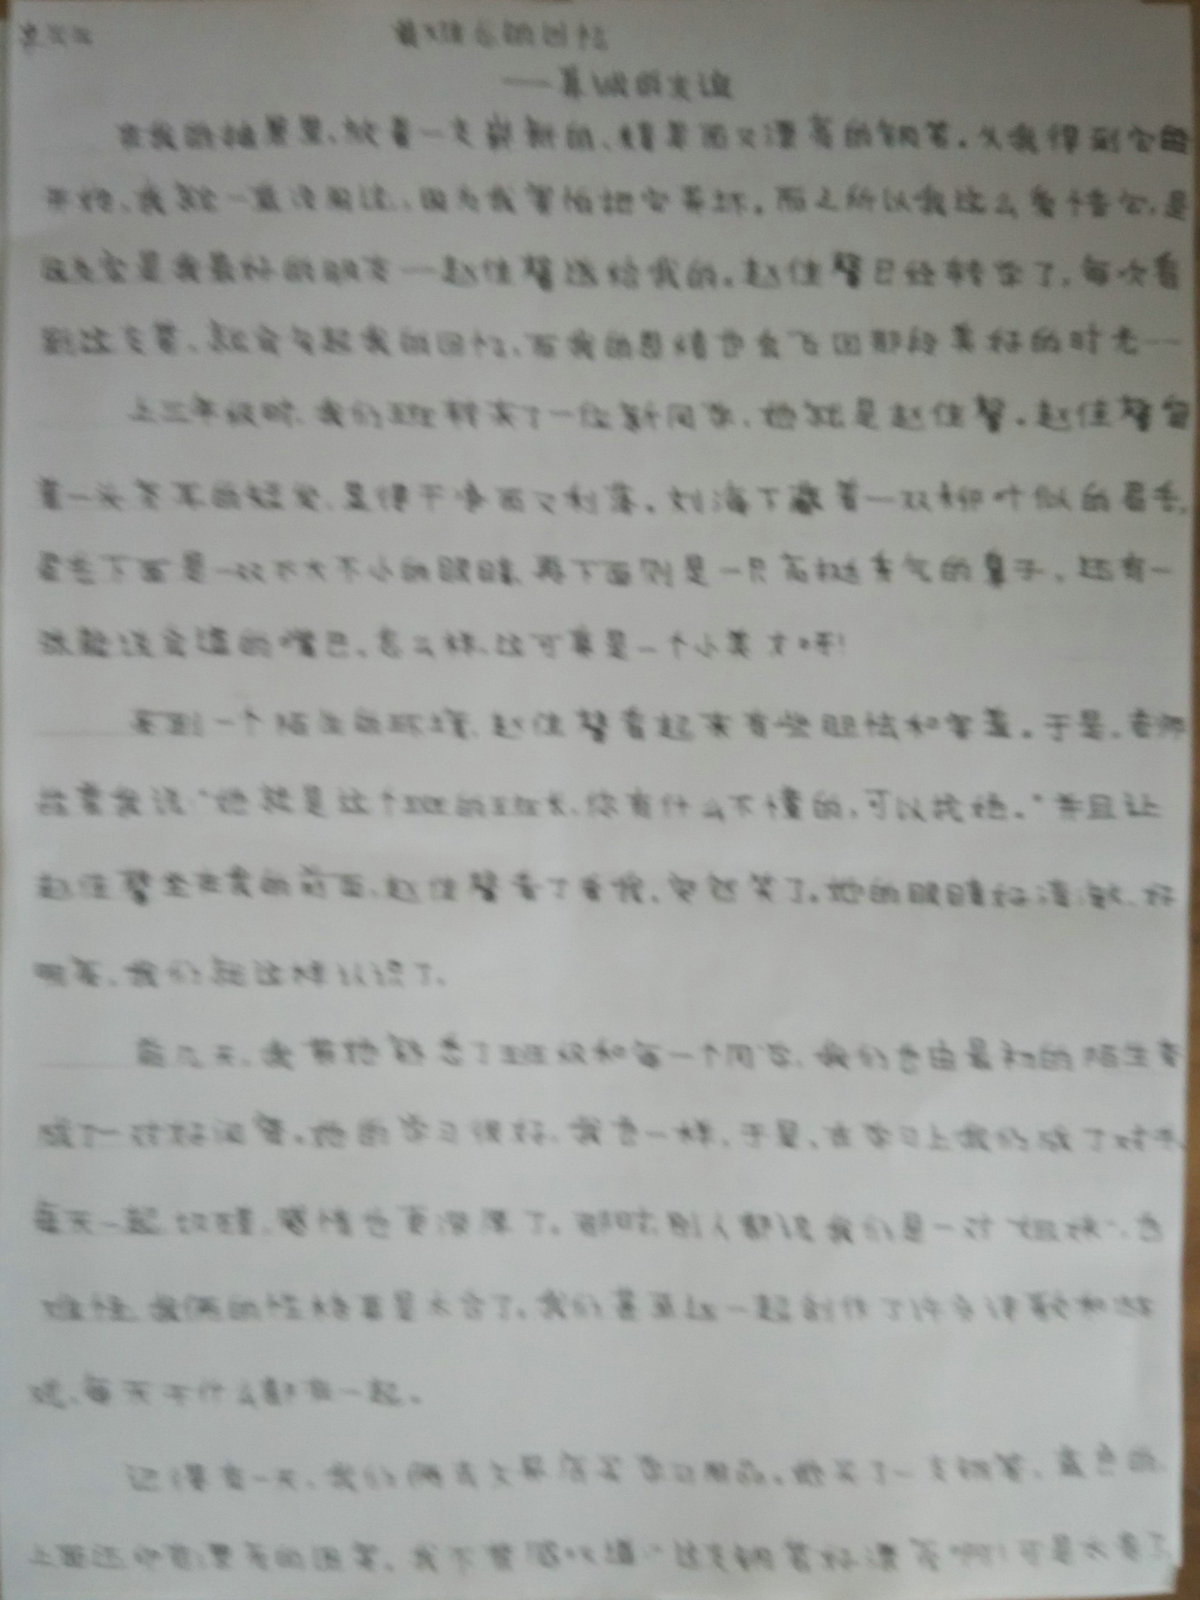 最难忘的回忆
——真诚的友谊
在我的抽屉里，放着一支崭新的、精美而又漂亮的钢笔。从我得到它的
开始，我就一直没用过，因为我害怕把它弄坏。而之所以我这么爱惜它，是
因为它是我最好的朋友——赵佳馨送给我的。赵佳馨已经转学了，每次看
到这支笔，就会勾起我的回忆，而我的思绪也会飞回那段美好的时光……
上三年级时，我们班转来了一位新同学，她就是赵佳馨。赵佳馨留
着一头齐耳的短发，显得干净而又利落。刘海下藏着一双柳叶似的眉毛，
眉毛下面是一双不大不小的眼睛，再下面则是一只高挺秀气的鼻子，还有一
张能说会道的嘴巴。怎么样，这可真是一个小美才呀！
来到一个陌生的环境，赵佳馨看起来有些胆怯和害羞。于是，老师
拉着我说“她就是这个班的班长，你有什么不懂的，可以找她。”并且让
赵佳馨坐在我的前面，赵佳馨看了看我，突然笑了。她的眼睛好清澈、好
明亮，我们就这样认识了。
前几天，我带她熟悉了班级和每一个同学，我们也由最初的陌生变
成了一对好闺蜜。她的学习很好，我也一样，于是，在学习上我们成了对手，
每天一起玩耍，感情也更深厚了。那时，别人都说我们是一对“姐妹”，也
难怪，我俩的性格真是太合了。我们甚至还一起创作了许多诗歌和游
戏，每天干什么都在一起。
记得有一天，我们俩去文具店买学习用品，她买了一支钢笔，蓝色的，
上面还印着漂亮的图案，我不禁感叹道“这支钢笔好漂亮啊！可是太贵了